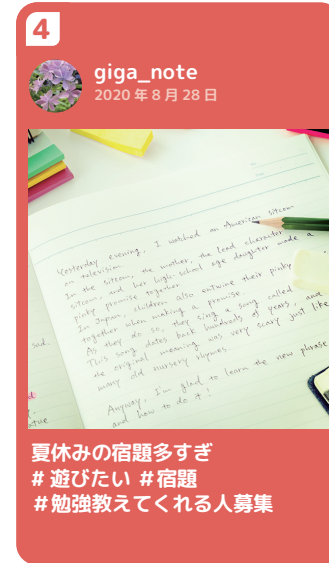 4
giga_note
2020年8月28日
Yesterday evening, I watched an American sitcom
on television.
In the sitcom, the mother, the lead character
sitcom, and her high-school age daughter made a
pinky promise together.
In Japan, children also entwine their pinky
together when making a promise.
As they do so, they sing a song called
This song dates back hundreds of years, and
the original meaning was very scary just like
many old nursery rhymes.
Anyway, I'm glad to learn the new phrase
and how to do it!
sad.
夏休みの宿題多すぎ
#遊びたい #宿題
#勉強教えてくれる人募集